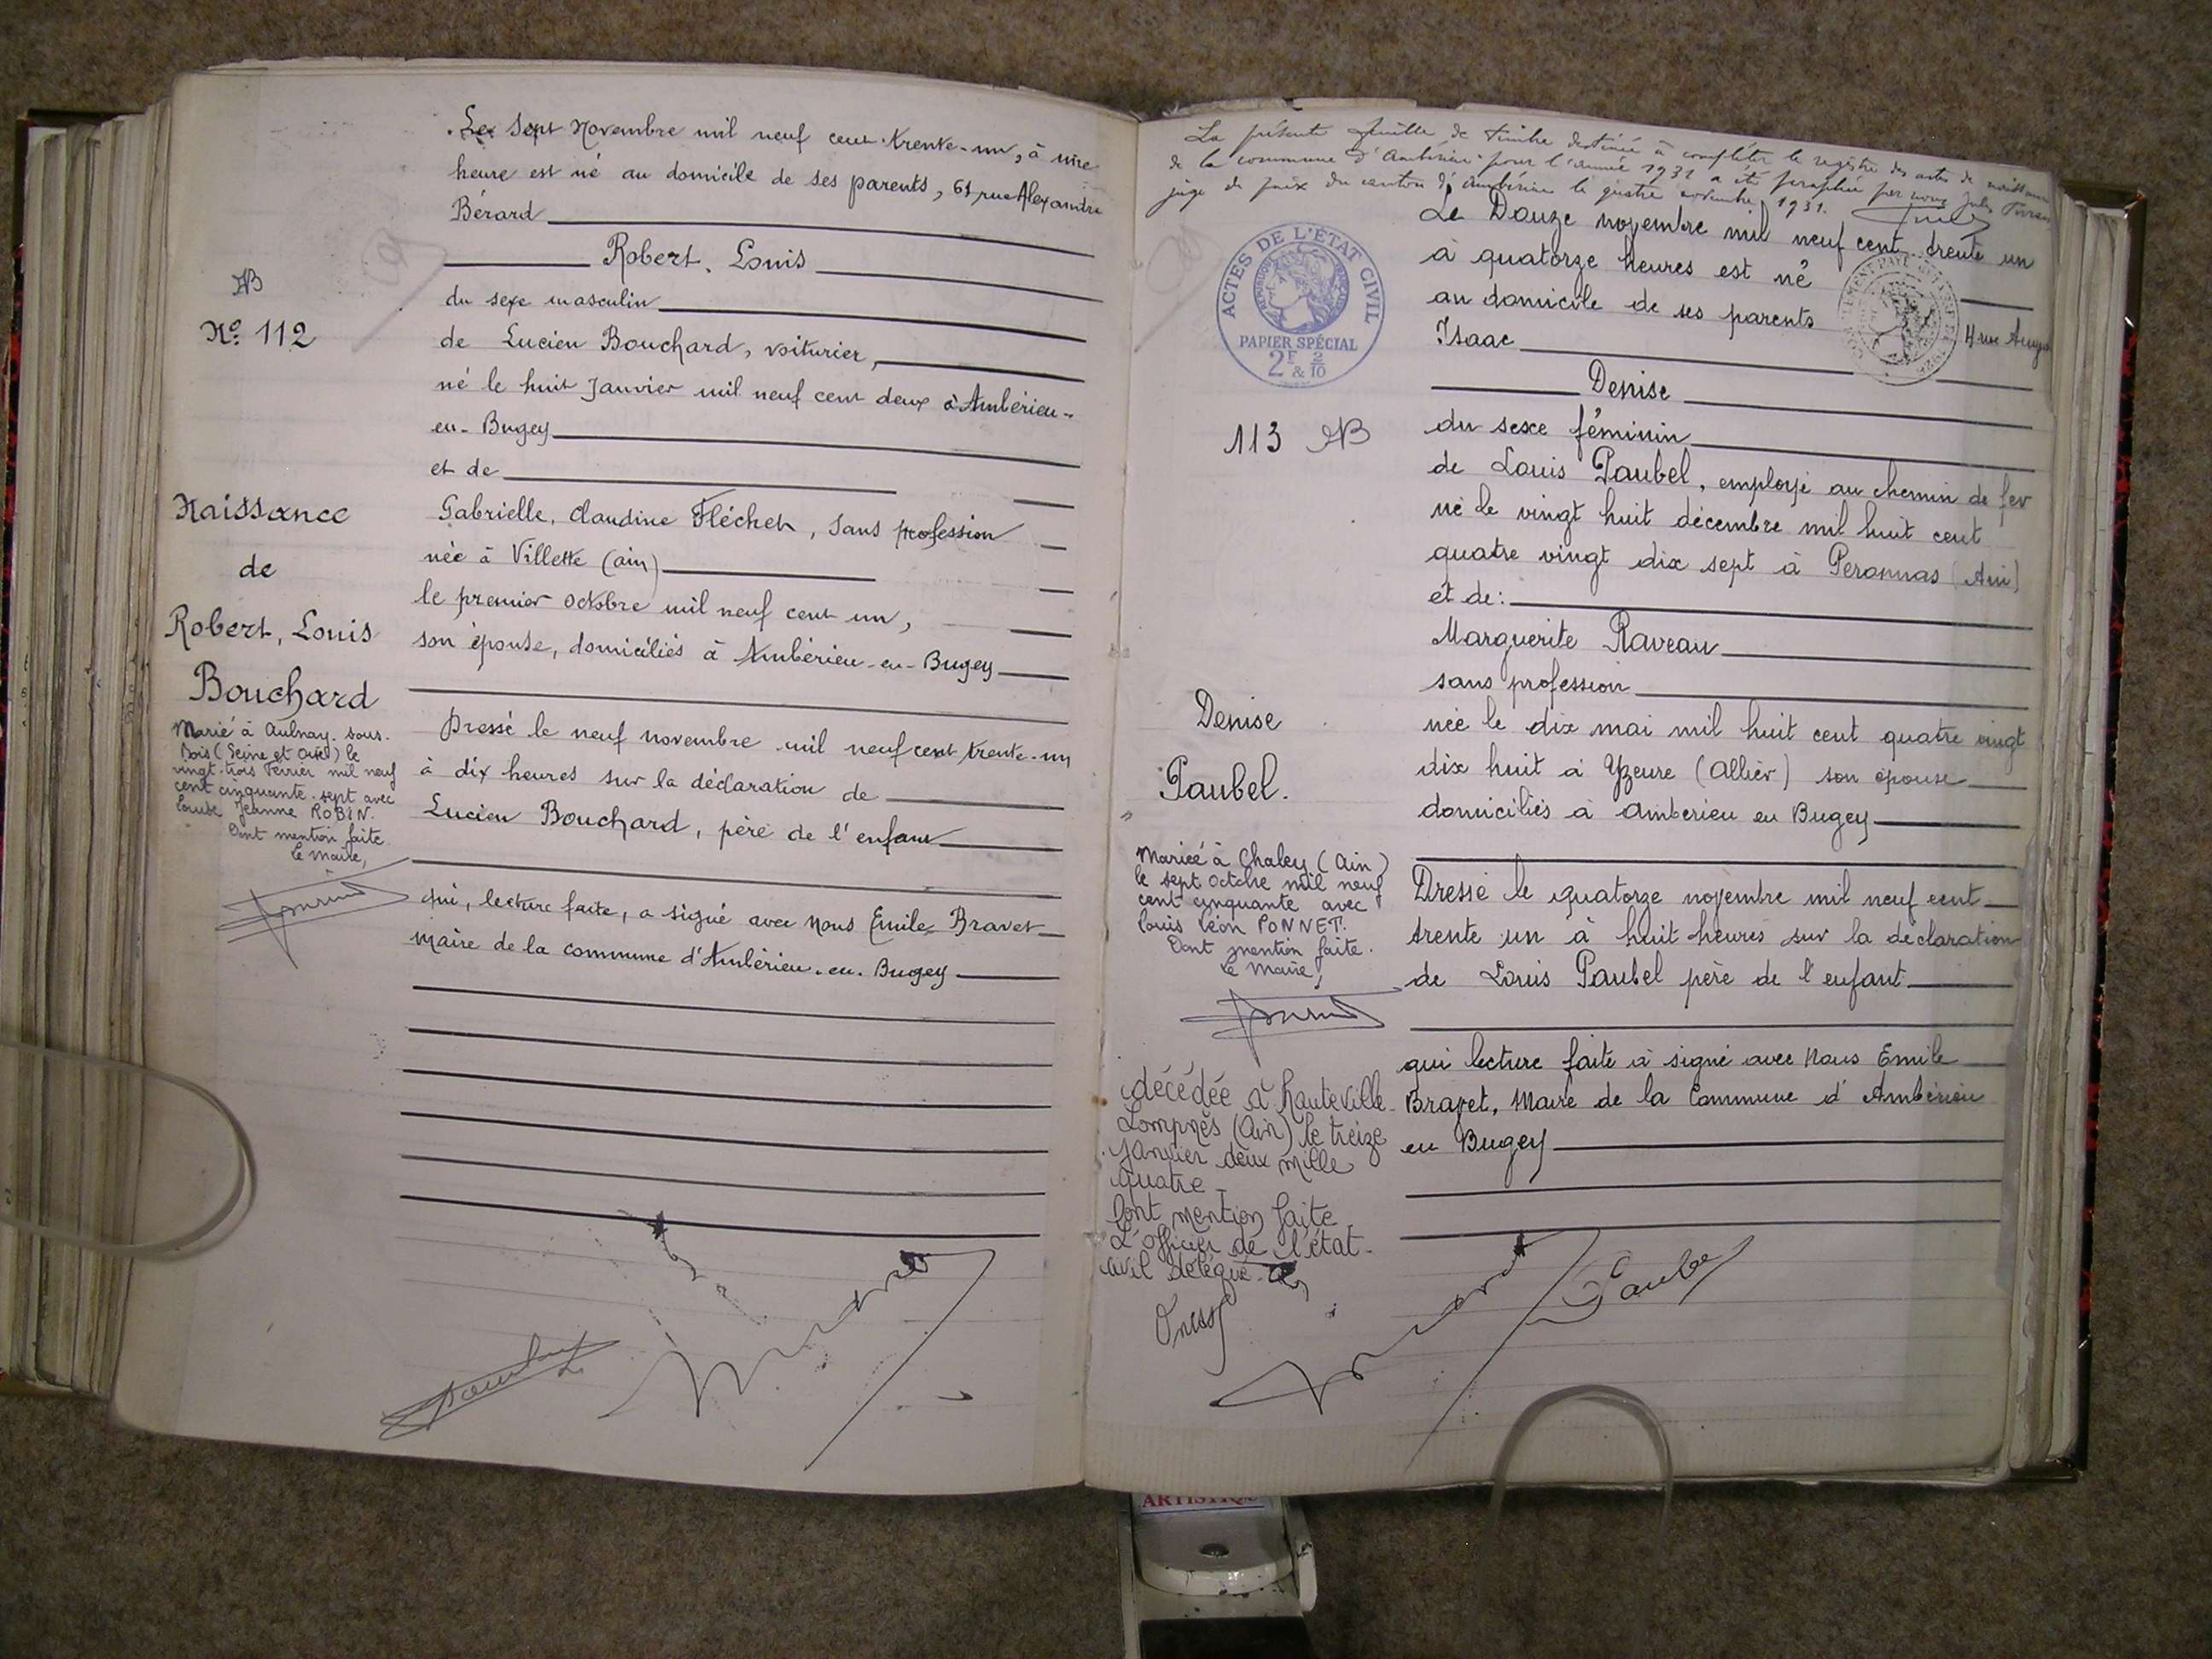 Le sept Novembre mil neuf cent trente-un, à une
heure est né au domicile de ses parents, 61 rue Alexandre
Bérard
Robert, Louis
du sexe masculin
de Lucien Bouchard, voiturier,
né le huit Janvier mil neuf cent deux à Ambérieu-
en-Bugey
et de
Gabrielle, Claudine Fléchet, sans profession
née à Villette (ain)
le premier octobre mil neuf cent un,
son épouse, domiciliés à Ambérieu-en-Bugey
Dressé le neuf novembre mil neuf cent trente-un
à dix heures sur la déclaration de
Lucien Bouchard, père de l'enfant
qui, lecture faite, a signé avec Nous Emile Bravet
maire de la commune d'Ambérieu-en-Bugey
AB
No 112
Naissance
de
Robert, Louis
Bouchard
Marié à Aulnay-sous-
Bois (Seine et Oise) le
vingt-trois Février mil neuf
cent cinquante-sept avec
Jeanne ROBIN.
Dont mention faite
Le Maire,
La présente feuille de timbre destinée à compléter le registre des actes de naissance
de la commune d'Ambérieu pour l'année 1931 a été paraphée par nous Jules
juge de paix du canton d'Ambérieu le quatre novembre 1931.
ACTES DE L'ÉTAT CIVIL
PAPIER SPÉCIAL
2F & 2/10
Le Douze novembre mil neuf cent trente un
à quatorze heures est né
au domicile de ses parents 4 rue
Isaac
Denise
du sexe féminin
de Louis Paubel, employé au chemin de fer
né le vingt huit décembre mil huit cent
quatre vingt dix sept à Peronnas (Ain)
et de:
Marguerite Raveau
sans profession
née le dix mai mil huit cent quatre vingt
dix huit à Yzeure (Allier) son épouse
domiciliés à Amberieu en Bugey
Dressé le quatorze novembre mil neuf cent
trente un à huit heures sur la déclaration
de Louis Paubel père de l'enfant
qui lecture faite à signé avec Nous Emile
Bravet, Maire de la Commune d'Ambérieu
en Bugey
113 AB
Denise
Paubel.
Mariée à Chaley (Ain)
le sept octobre mil neuf
cent cinquante avec
Louis Léon PONNET.
Dont mention faite.
Le Maire,
décédée à Hauteville-
Lompnès (Ain) le treize
Janvier deux mille
quatre
Dont mention faite
L'officier de l'état-
civil délégué
Paubel
ARTISTIQUE